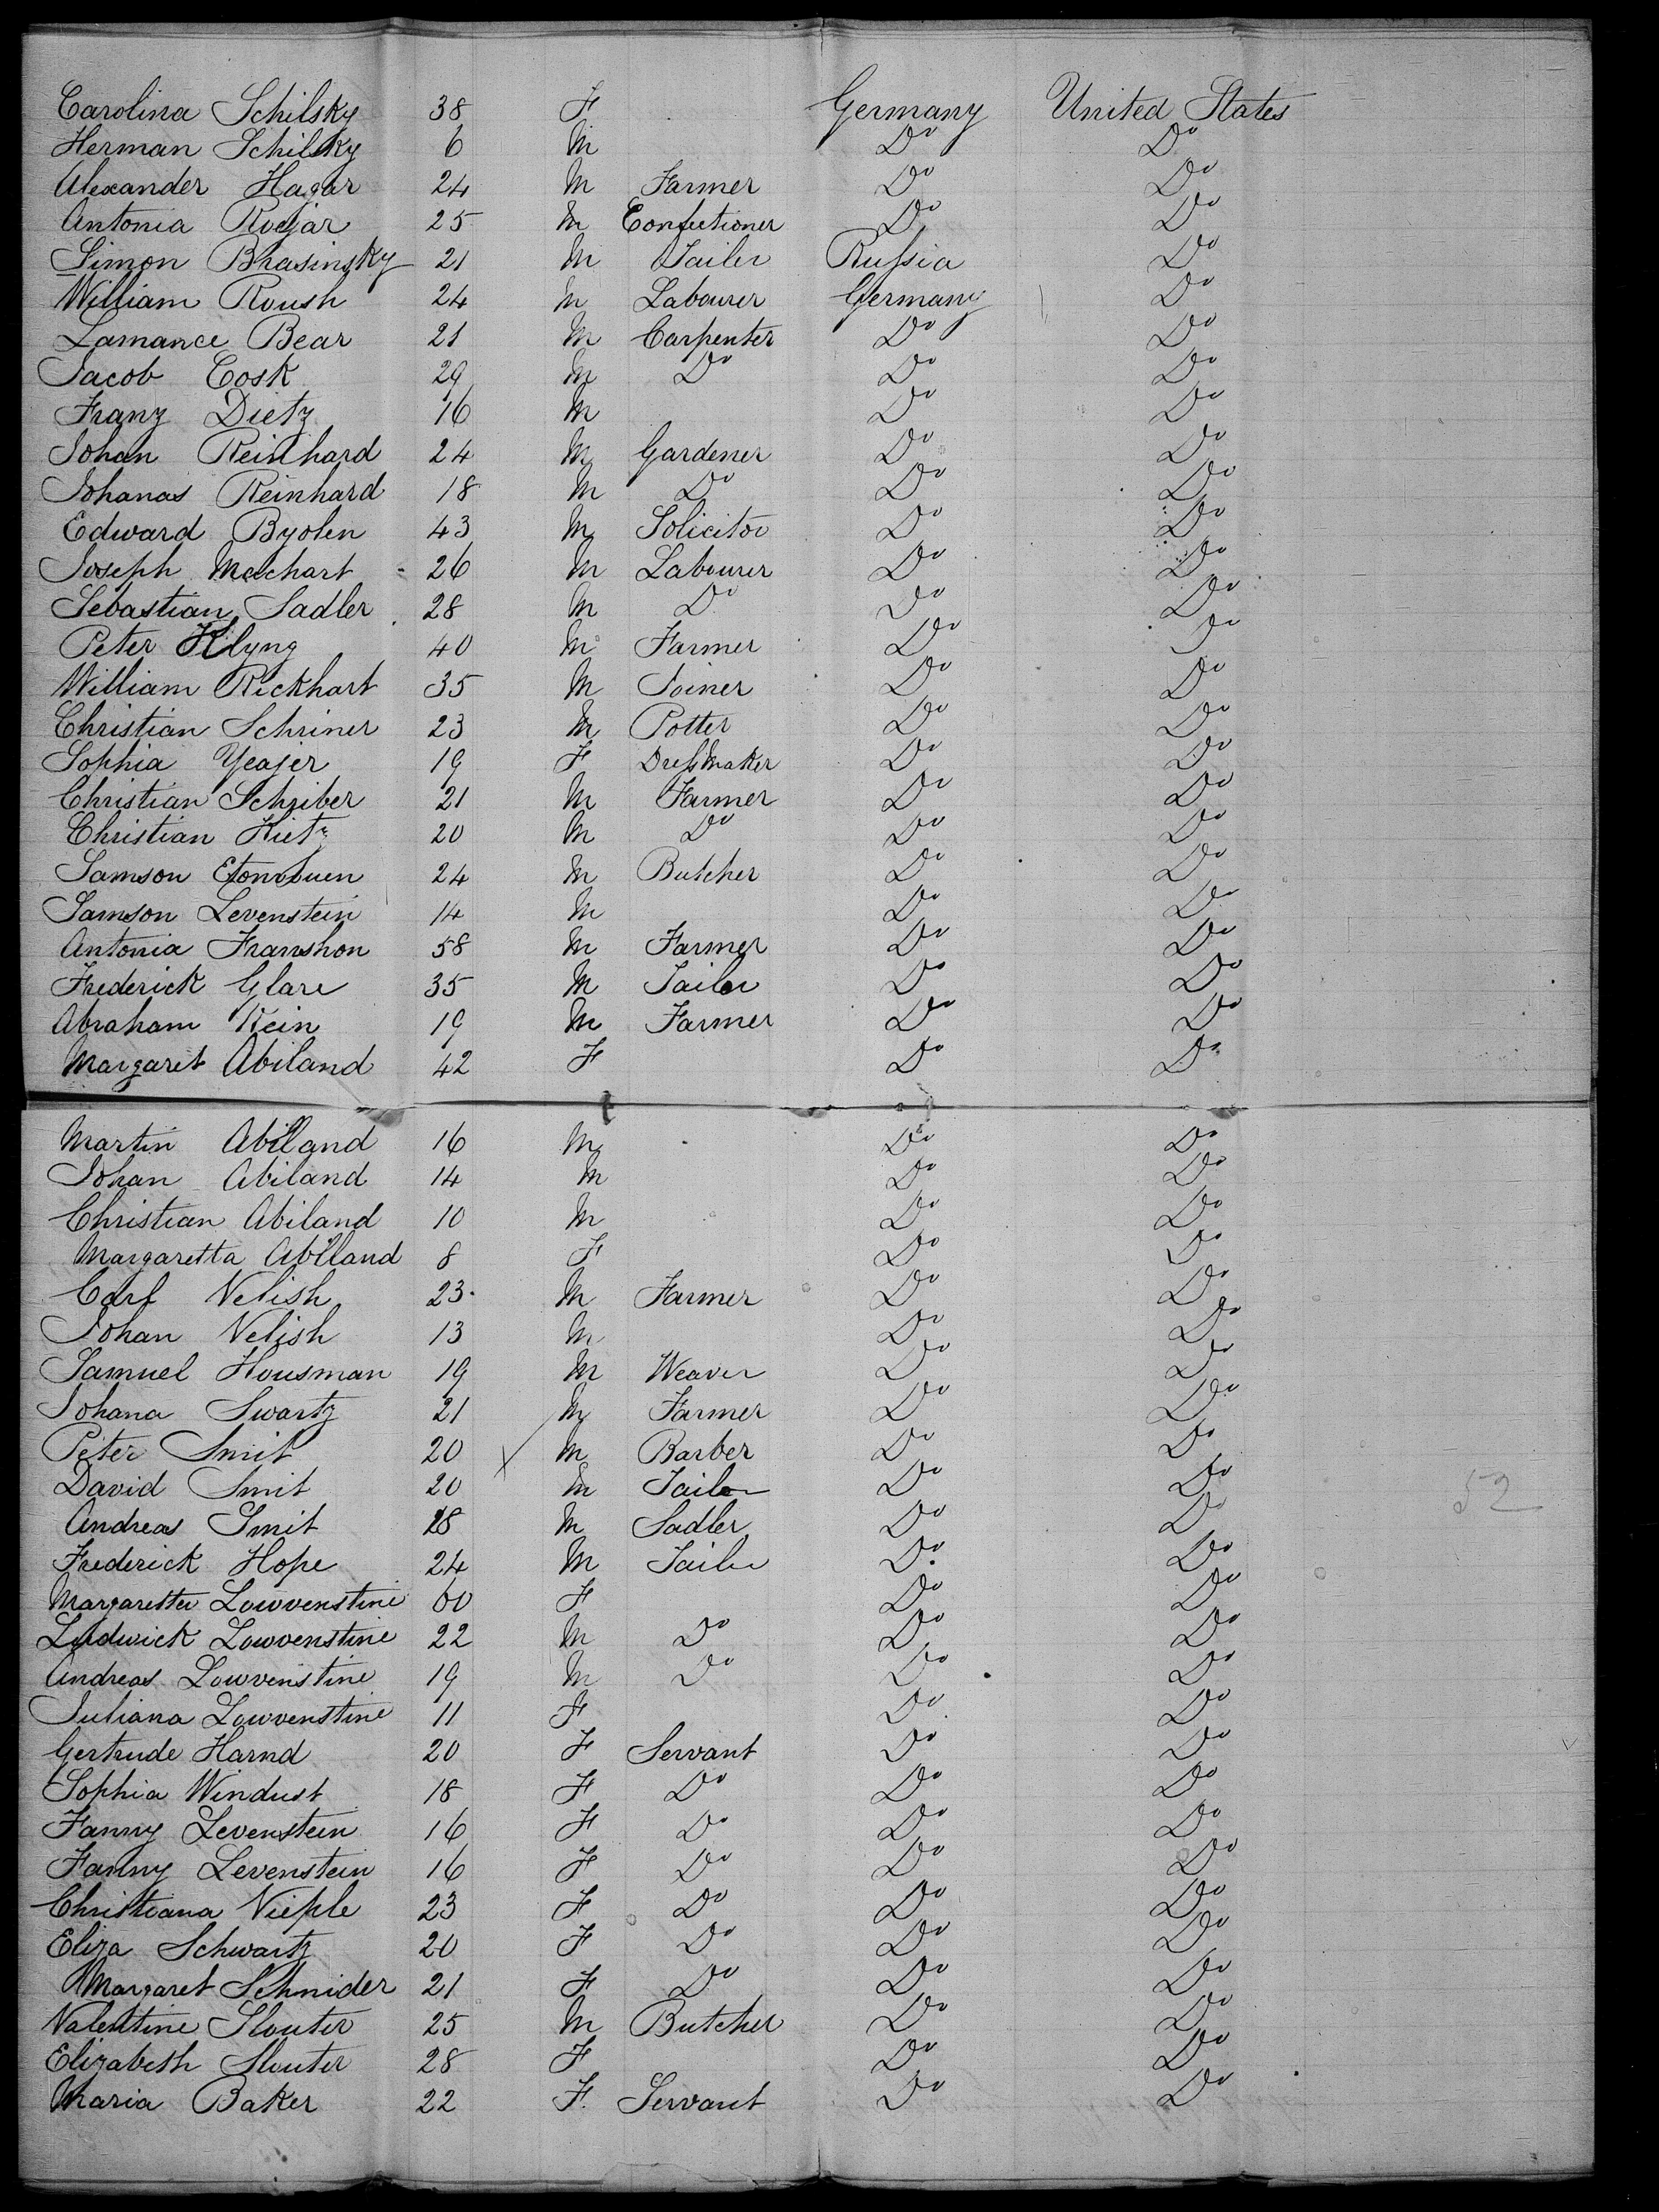 Carolina Schilsky 38 F Germany United States
Herman Schilsky 6 M Do Do
Alexander Hagar 24 M Farmer Do Do
Antonia Roejar 25 M Confectioner Do Do
Simon Brasinsky 21 M Tailer Russia Do
William Roush 24 M Labourer Germany Do
Lamance Bear 21 M Carpenter Do Do
Jacob Cosk 29 M Do Do Do
Franz Dietz 16 M Do Do
Johan Reinhard 24 M Gardener Do Do
Johanas Reinhard 18 M Do Do Do
Edward Byolen 43 M Solicitor Do Do
Joseph Mechart 26 M Labourer Do Do
Sebastian Sadler 28 M Do Do Do
Peter Klyng 40 M Farmer Do Do
William Rickhart 35 M Joiner Do Do
Christian Schriner 23 M Potter Do Do
Sophia Yeajer 19 F Dressmaker Do Do
Christian Schriber 21 M Farmer Do Do
Christian Kietz 20 M Do Do Do
Samson 24 M Butcher Do Do
Samson Levenstein 14 M Do Do
Antonia Franshon 58 M Farmer Do Do
Frederick Glare 35 M Tailor Do Do
Abraham Kein 19 M Farmer Do Do
Margaret Abiland 42 F Do Do
Martin Abiland 16 M Do Do
Johan Abiland 14 M Do Do
Christian Abiland 10 M Do Do
Margaretta Abiland 8 F Do Do
Carl Velish 23 M Farmer Do Do
Johan Velish 13 M Do Do
Samuel Housman 19 M Weaver Do Do
Johana Swartz 21 M Farmer Do Do
Peter Smit 20 M Barber Do Do
David Smit 20 M Tailor Do Do
52
Andreas Smit 28 M Sadler Do Do
Frederick Hope 24 M Tailer Do Do
Margaretta Lowvenstine 60 F Do Do
Ludwick Lowvenstine 22 M Do Do Do
Andreas Lowvenstine 19 M Do Do Do
Juliana Lowvenstine 11 F Do Do
Gertrude Harnd 20 F Servant Do Do
Sophia Windust 18 F Do Do Do
Fanny Levenstein 16 F Do Do Do
Fanny Levenstein 16 F Do Do Do
Christiana Vieple 23 F Do Do Do
Eliza Schwartz 20 F Do Do Do
Margaret Schnider 21 F Do Do Do
Valentine Slouter 25 M Butcher Do Do
Elizabeth Slouter 28 F Do Do
Maria Baker 22 F. Servant Do Do